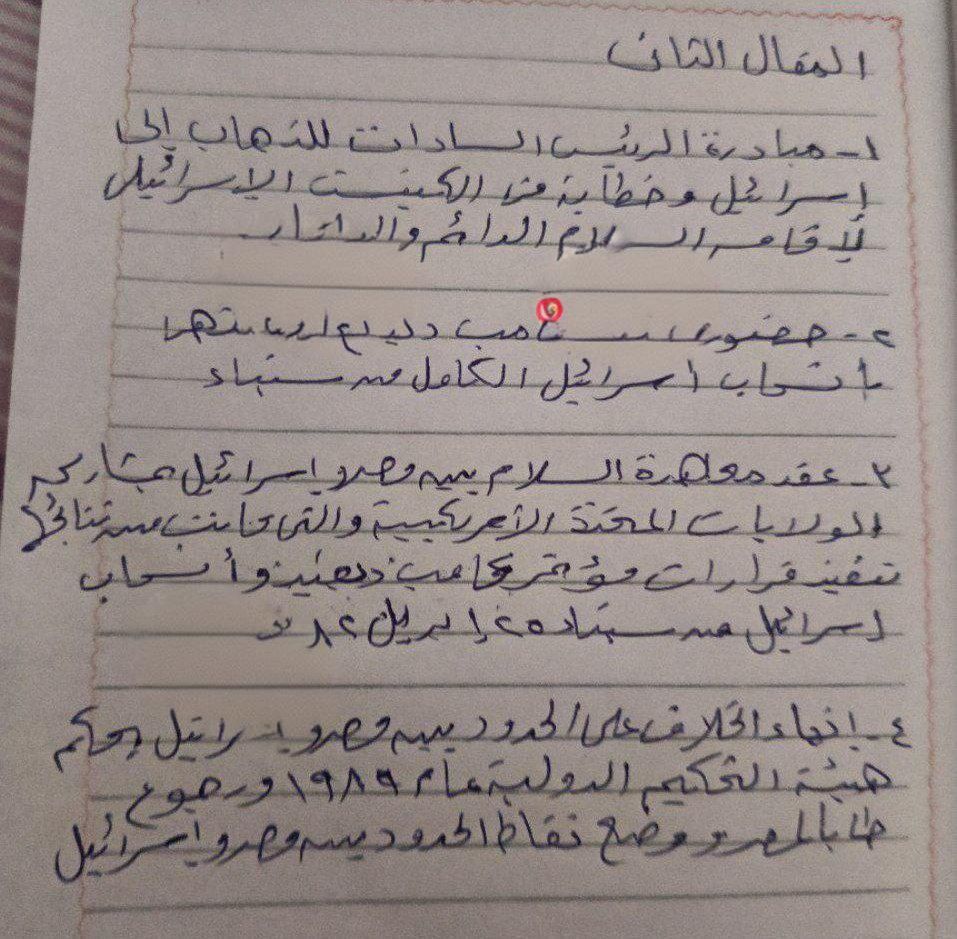 المقال الثانى
١- مبادرة الرئيس السادات للذهاب إلى
إسرائيل وخطابه فى الكنيست الإسرائيلى
لإقامه السلام الدائم والعادل
٢- حضور كامب ديفيد
انسحاب اسرائيل الكامل من سيناء
٣- عقد معاهدة السلام بين مصر وإسرائيل بمشاركة
الولايات المتحدة الأمريكيية والتى كانت من نتائجها
تنفيذ قرارات مؤتمر كامب ديفيد وأنسحاب
اسرائيل من سيناء ٢٥ إبريل ٨٢
٤- إنهاء الخلاف على الحدود بين مصر وإسرائيل بحكم
هيئة التحكيم الدولية عام ١٩٨٩ ورجوع
طابا لمصر ووضع نقاط الحدود بين مصر وإسرائيل